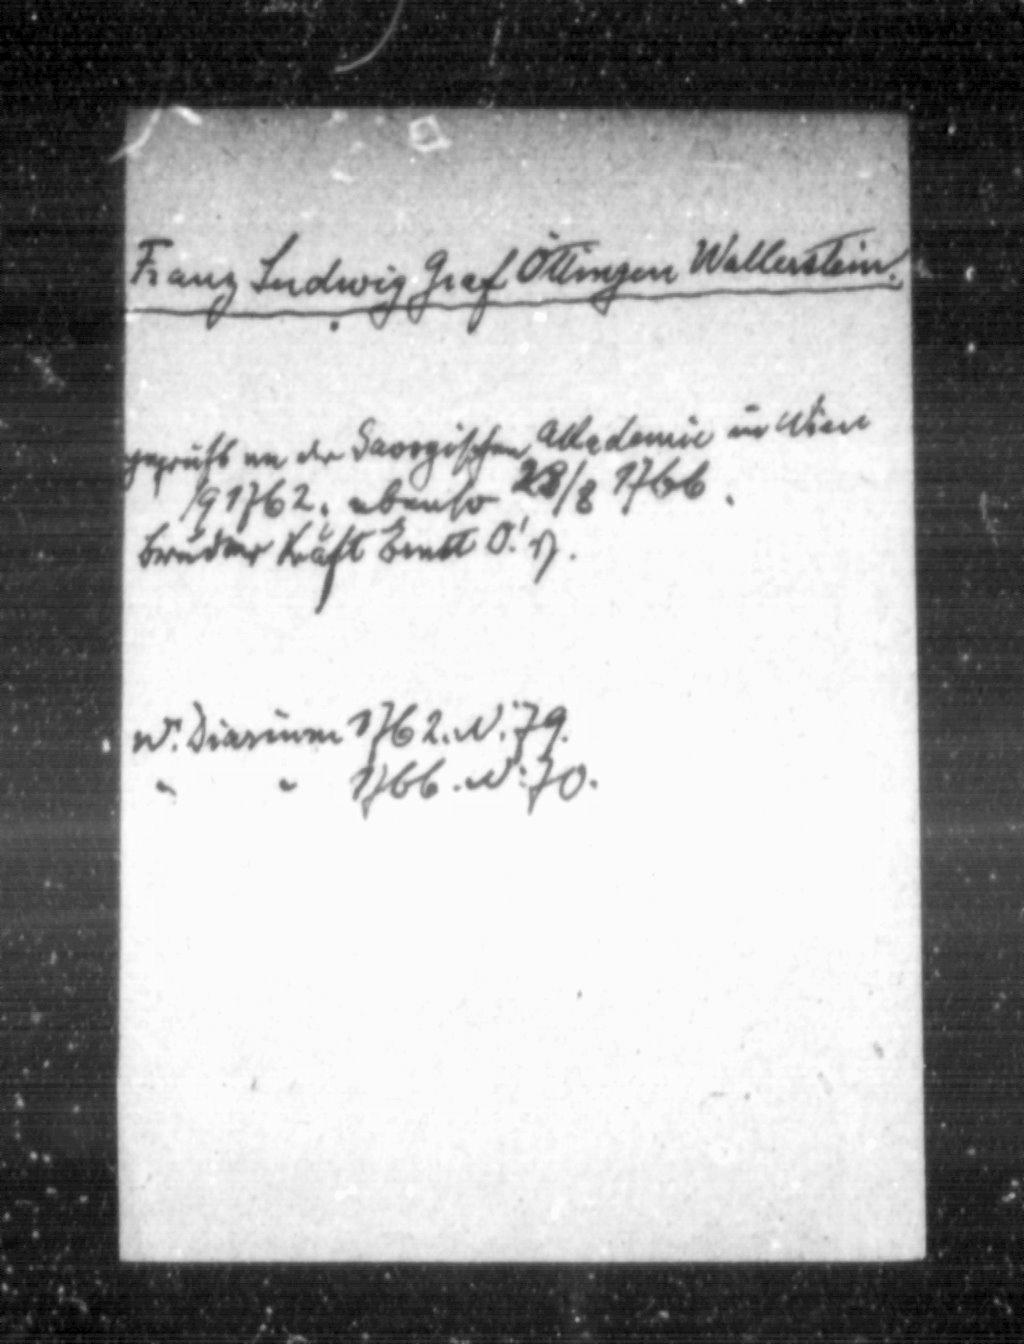 Franz Ludwig Graf Öttingen Wallerstein.
geprüft an der Savoyischen Akademie in Wien
/9 1762. ebenso 28/8 1766.
Bruder Kraft Ernst O!
W. Diarium 1762. N: 79.
" " 1766. N: 70.